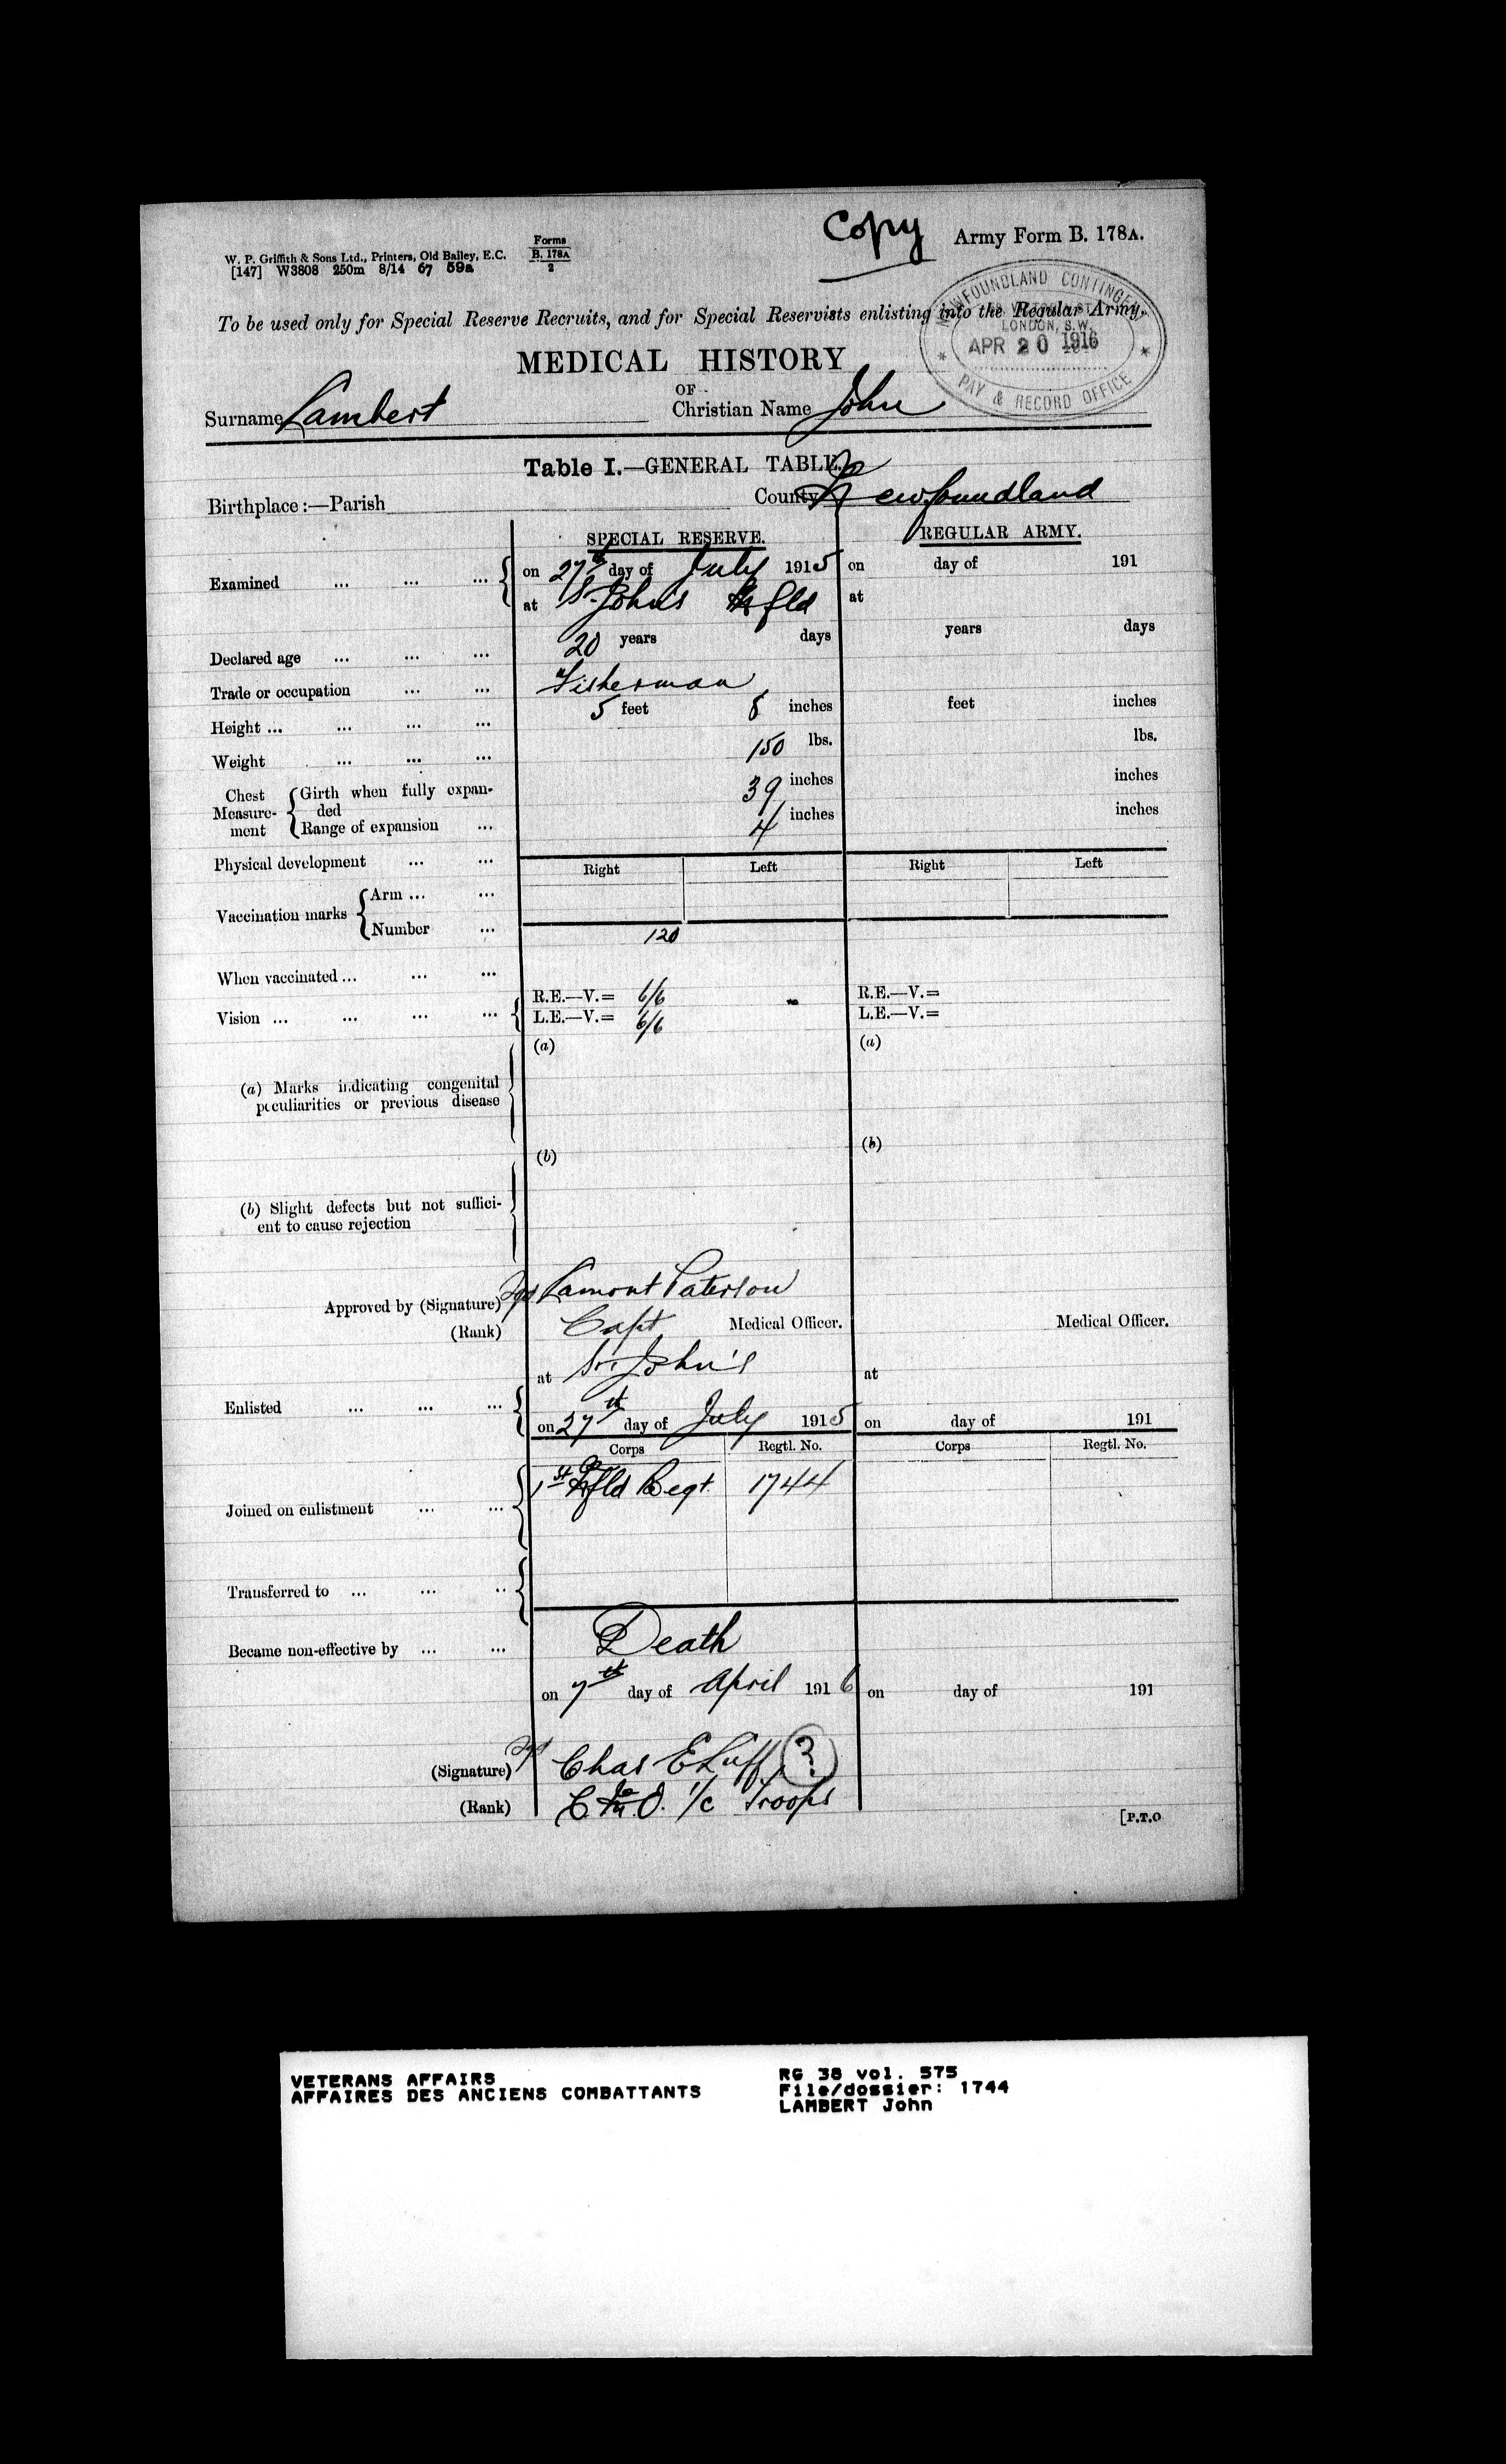 Copy
Army Form B. 178A.
W. P. Griffith & Sons Ltd., Printers, Old Bailey, E.C.
[147] W3808 250m 8/14 67 59a
Forms
B. 178A
2
NEWFOUNDLAND CONTINGENT
58 VICTORIA ST.
LONDON, S.W.
APR 20 1916
PAY & RECORD OFFICE
To be used only for Special Reserve Recruits, and for Special Reservists enlisting into the Regular Army.
MEDICAL HISTORY
OF
Surname Lambert Christian Name John
Table I.—GENERAL TABLE.
Birthplace:—Parish County Newfoundland
SPECIAL RESERVE. REGULAR ARMY.
Examined ... ... ... on 27th day of July 1915 on day of 191
at St. John's Nfld at
Declared age ... ... ... 20 years days years days
Trade or occupation ... ... Fisherman
Height ... ... ... ... 5 feet 8 inches feet inches
Weight ... ... ... 150 lbs. lbs.
Chest Measurement Girth when fully expanded 39 inches inches
Range of expansion ... 4 inches inches
Physical development ... ...
Right Left Right Left
Vaccination marks Arm ... ...
Number ...
120
When vaccinated ... ... ...
Vision ... ... ... ... R.E.—V.= 6/6 R.E.—V.=
L.E.—V.= 6/6 L.E.—V.=
(a) Marks indicating congenital (a) (a)
peculiarities or previous disease
(b) Slight defects but not suffici- (b) (b)
ent to cause rejection
Approved by (Signature) Sgd Lamont Paterson
(Rank) Capt Medical Officer. Medical Officer.
at St. John's at
Enlisted ... ... ... on 27th day of July 1915 on day of 191
Corps Regtl. No. Corps Regtl. No.
Joined on enlistment ... ... 1st Nfld Regt. 1744
Transferred to ... ... ..
Became non-effective by ... ... Death
on 7th day of April 1916 on day of 191
(Signature) Sgd Chas E Luff (?)
(Rank) C. M. O. i/c Troops
[P.T.O
VETERANS AFFAIRS
AFFAIRES DES ANCIENS COMBATTANTS
RG 38 vol. 575
File/dossier: 1744
LAMBERT John